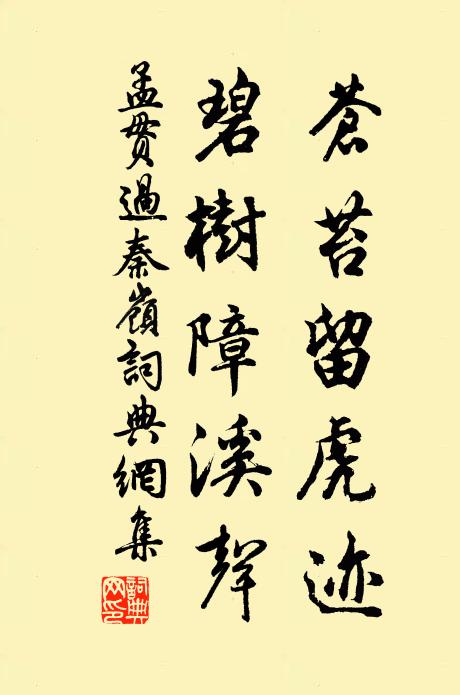 蒼苔留虎迹
碧樹障溪聲
孟貫過秦嶺詞典網集
詞典網印